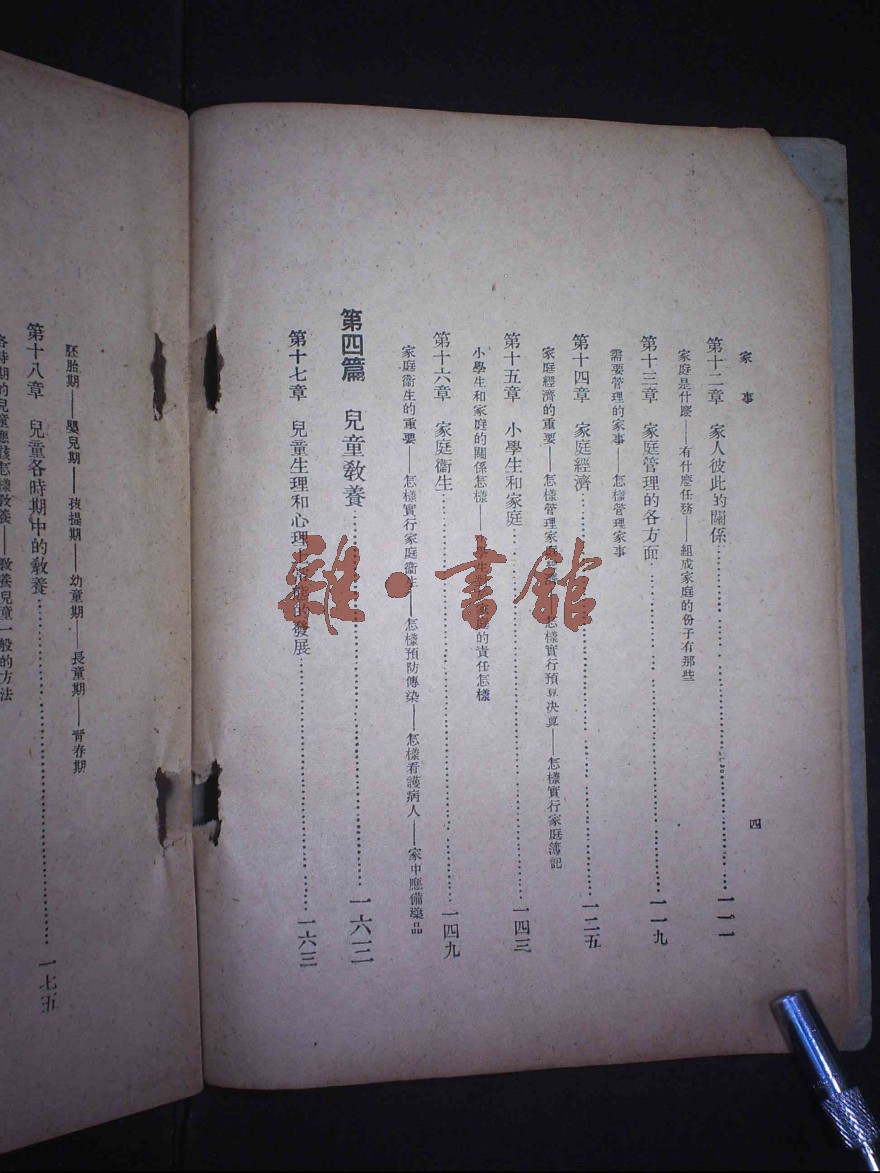 家事
四
第十二章 家人彼此的關係 一一一
家庭是什麼——有什麼任務——組成家庭的份子有那些
第十三章 家庭管理的各方面 一一九
需要管理的家事——怎樣管理家事
第十四章 家庭經濟 一二五
家庭經濟的重要——怎樣管理家庭經濟——怎樣實行預算決算——怎樣實行家庭簿記
第十五章 小學生和家庭 一四三
小學生和家庭的關係怎樣——小學生對家庭的責任怎樣
第十六章 家庭衞生 一四九
家庭衞生的重要——怎樣實行家庭衞生——怎樣預防傳染——怎樣看護病人——家中應備藥品
第四篇 兒童敎養 一六三
第十七章 兒童生理和心理上的發展 一六三
胚胎期——嬰兒期——孩提期——幼童期——長童期——靑春期
第十八章 兒童各時期中的敎養 一七五
各時期的兒童應該怎樣敎養——敎養兒童一般的方法
雜·書館